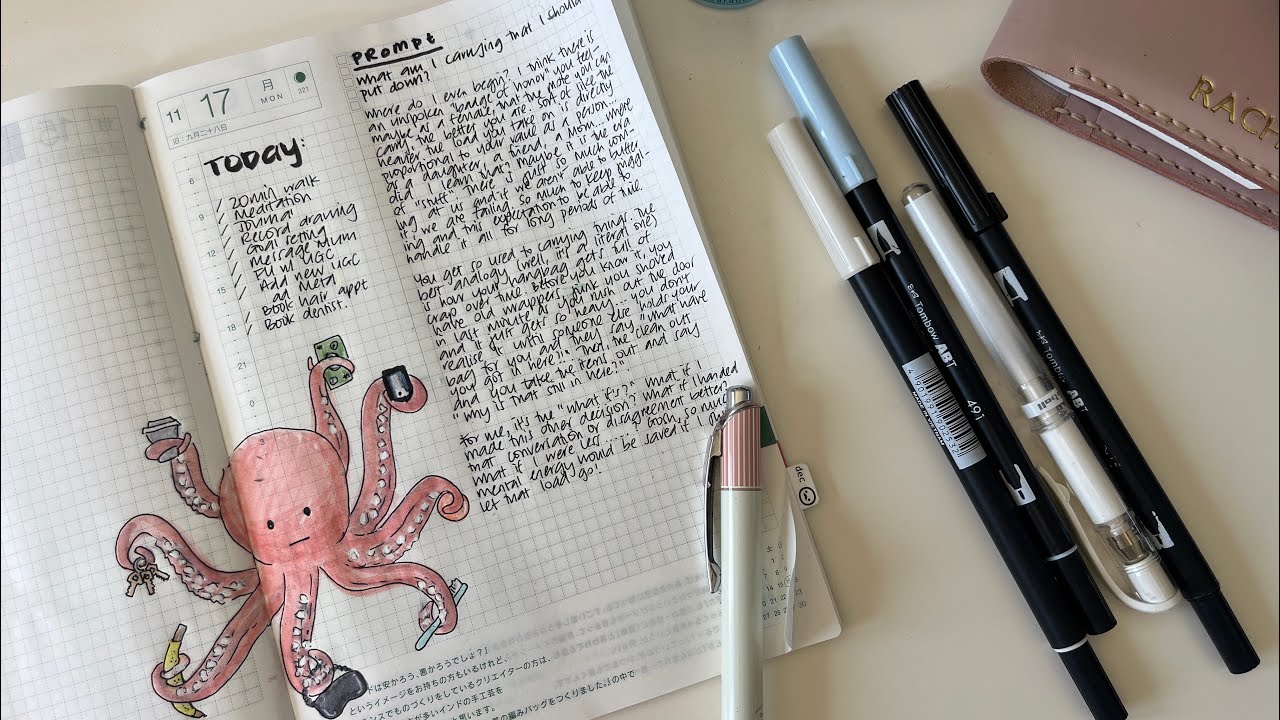 11 17 月 MON 321
旧・九月二十八日
TODAY:
/ 20min walk
/ Meditation
/ Journal
/ Record drawing
/ Goal setting
/ Message Mum
/ Film UGC
/ Add new UGC
ad Meta
/ Book hair appt
/ Book dentist.
6
9
12
15
18
21
0
PROMPT
What am I carrying that I should
put down?
Where do I even begin? I think there is
an unspoken "badge of honor" you feel-
maybe as a female that the more you can
carry, the better you are. Sort of like the
heavier the load you take on is directly
proportional to your value as a person...
of a daughter, a friend, a mom...where
did I learn that? Maybe it's the era
of "stuff". There is just so much
at us and if we aren't able to
we are failing. So much to keep juggl-
ing and this expectation to be able to
handle it all for long periods of time.
You get so used to carrying things. The
best analogy (well, it's a literal one)
is how your handbag gets full of
crap over time. Before you know it, you
have old wrappers, junk you shoved
in last minute as you run out the door
and it just gets so heavy. You don't
realise it until someone else holds your
bag for you and they say "what have
you got in here?". Then the clean out
and you take the items out and say
"why is that still in here?"
For me, it's the "what ifs?" What if I
made this other decision? What if I handed
that conversation or disagreement better?
What if I were ... Gosh, so much
mental energy would be saved if I
let that load go!
dec
土 日
ドは安かろう、悪かろうでしょ？」
というイメージをお持ちの方もいるけれど、
でものづくりをしているクリエイターの方は、
が多いインドの手工芸を
思います。
編みバッグをつくりました』の中で
Tombow ABT
491
4901991902532
Tombow ABT
ball
RACH